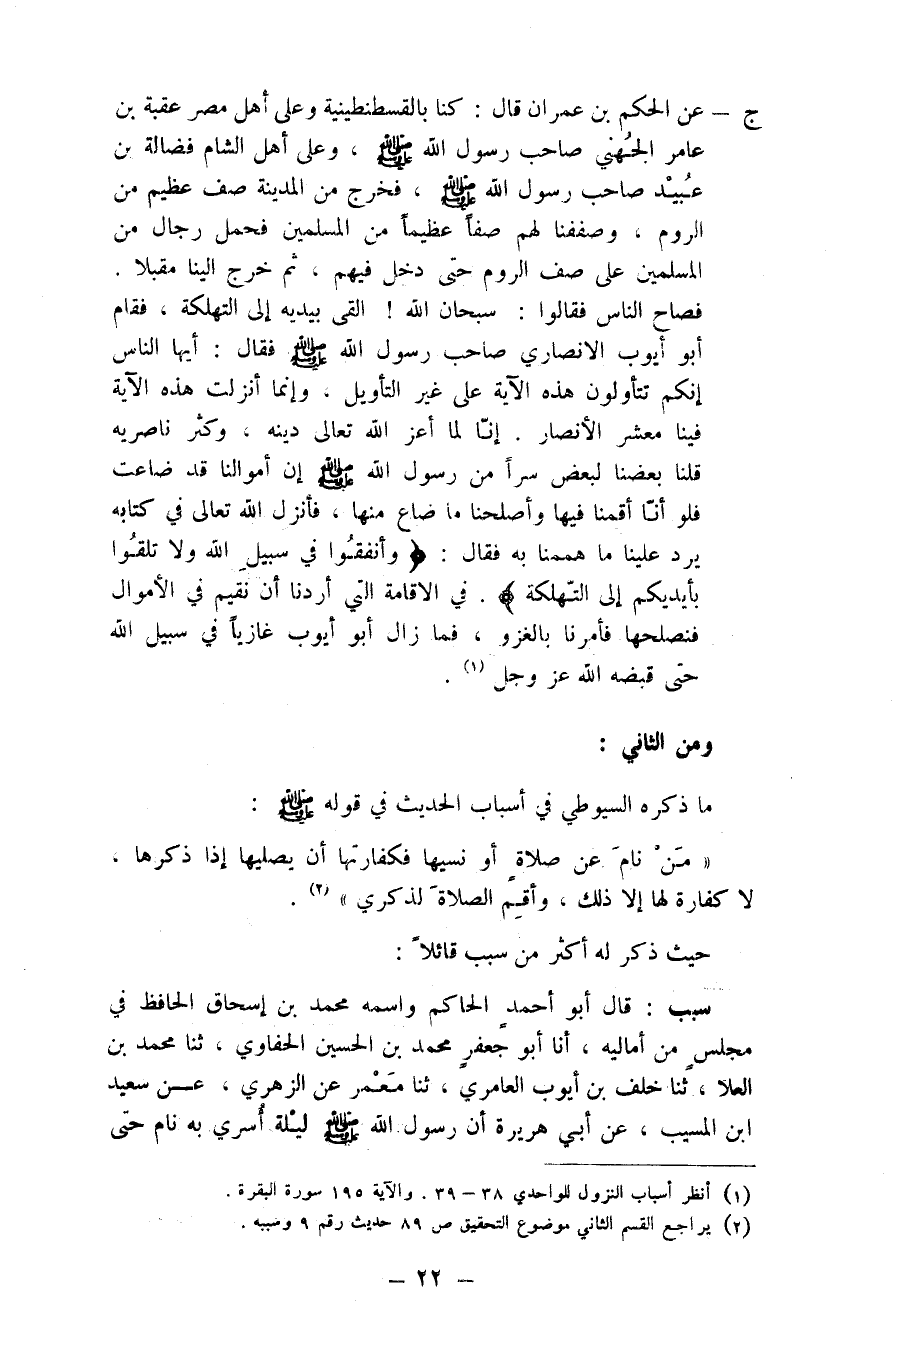 ج – عن الحكم بن عمران قال : كنا بالقسطنطينية وعلى أهل مصر عقبة بن
عامر الجُهني صاحب رسول الله ﷺ ، وعلى أهل الشام فضالة بن
عُبيْد صاحب رسول الله ﷺ ، فخرج من المدينة صف عظيم من
الروم ، وصففنا لهم صفاً عظيماً من المسلمين فحمل رجال من
المسلمين على صف الروم حتى دخل فيهم ، ثم خرج الينا مقبلا .
فصاح الناس فقالوا : سبحان الله ! القى بيديه إلى التهلكة ، فقام
أبو أيوب الانصاري صاحب رسول الله ﷺ فقال : أيها الناس
إنكم تتأولون هذه الآية على غير التأويل ، وإنما أنزلت هذه الآية
فينا معشر الأنصار . إنّا لما أعز الله تعالى دينه ، وكثر ناصريه
قلنا بعضنا لبعض سراً من رسول الله ﷺ إن أموالنا قد ضاعت
فلو أنّا أقمنا فيها وأصلحنا ما ضاع منها ، فأنزل الله تعالى في كتابه
يرد علينا ما هممنا به فقال : ﴿ وأنفقُوا في سبيلِ الله ولا تلقُوا
بأيديكم إلى التّهلكة ﴾ . في الاقامة التي أردنا أن نقيم في الأموال
فنصلحها فأمرنا بالغزو ، فما زال أبو أيوب غازياً في سبيل الله
حتى قبضه الله عز وجل (١) .
ومن الثاني :
ما ذكره السيوطي في أسباب الحديث في قوله ﷺ :
« مَنْ نامَ عن صلاةٍ أو نسيها فكفارتها أن يصليها إذا ذكرها ،
لا كفارة لها إلا ذلك ، وأقِم الصلاةَ لذكري » (٢) .
حيث ذكر له أكثر من سبب قائلاً :
سبب : قال أبو أحمد الحاكم واسمه محمد بن إسحاق الحافظ في
مجلسٍ من أماليه ، أنا أبو جعفرٍ محمد بن الحسين الحفاوي ، ثنا محمد بن
العلا ، ثنا خلف بن أيوب العامري ، ثنا مَعْمر عن الزهري ، عن سعيد
ابن المسيب ، عن أبي هريرة أن رسول الله ﷺ ليْلة أُسري به نام حتى
(١) أنظر أسباب النزول للواحدي ٣٨ – ٣٩ . والآية ١٩٥ سورة البقرة .
(٢) يراجع القسم الثاني موضوع التحقيق ص ٨٩ حديث رقم ٩ وسببه .
– ٢٢ –